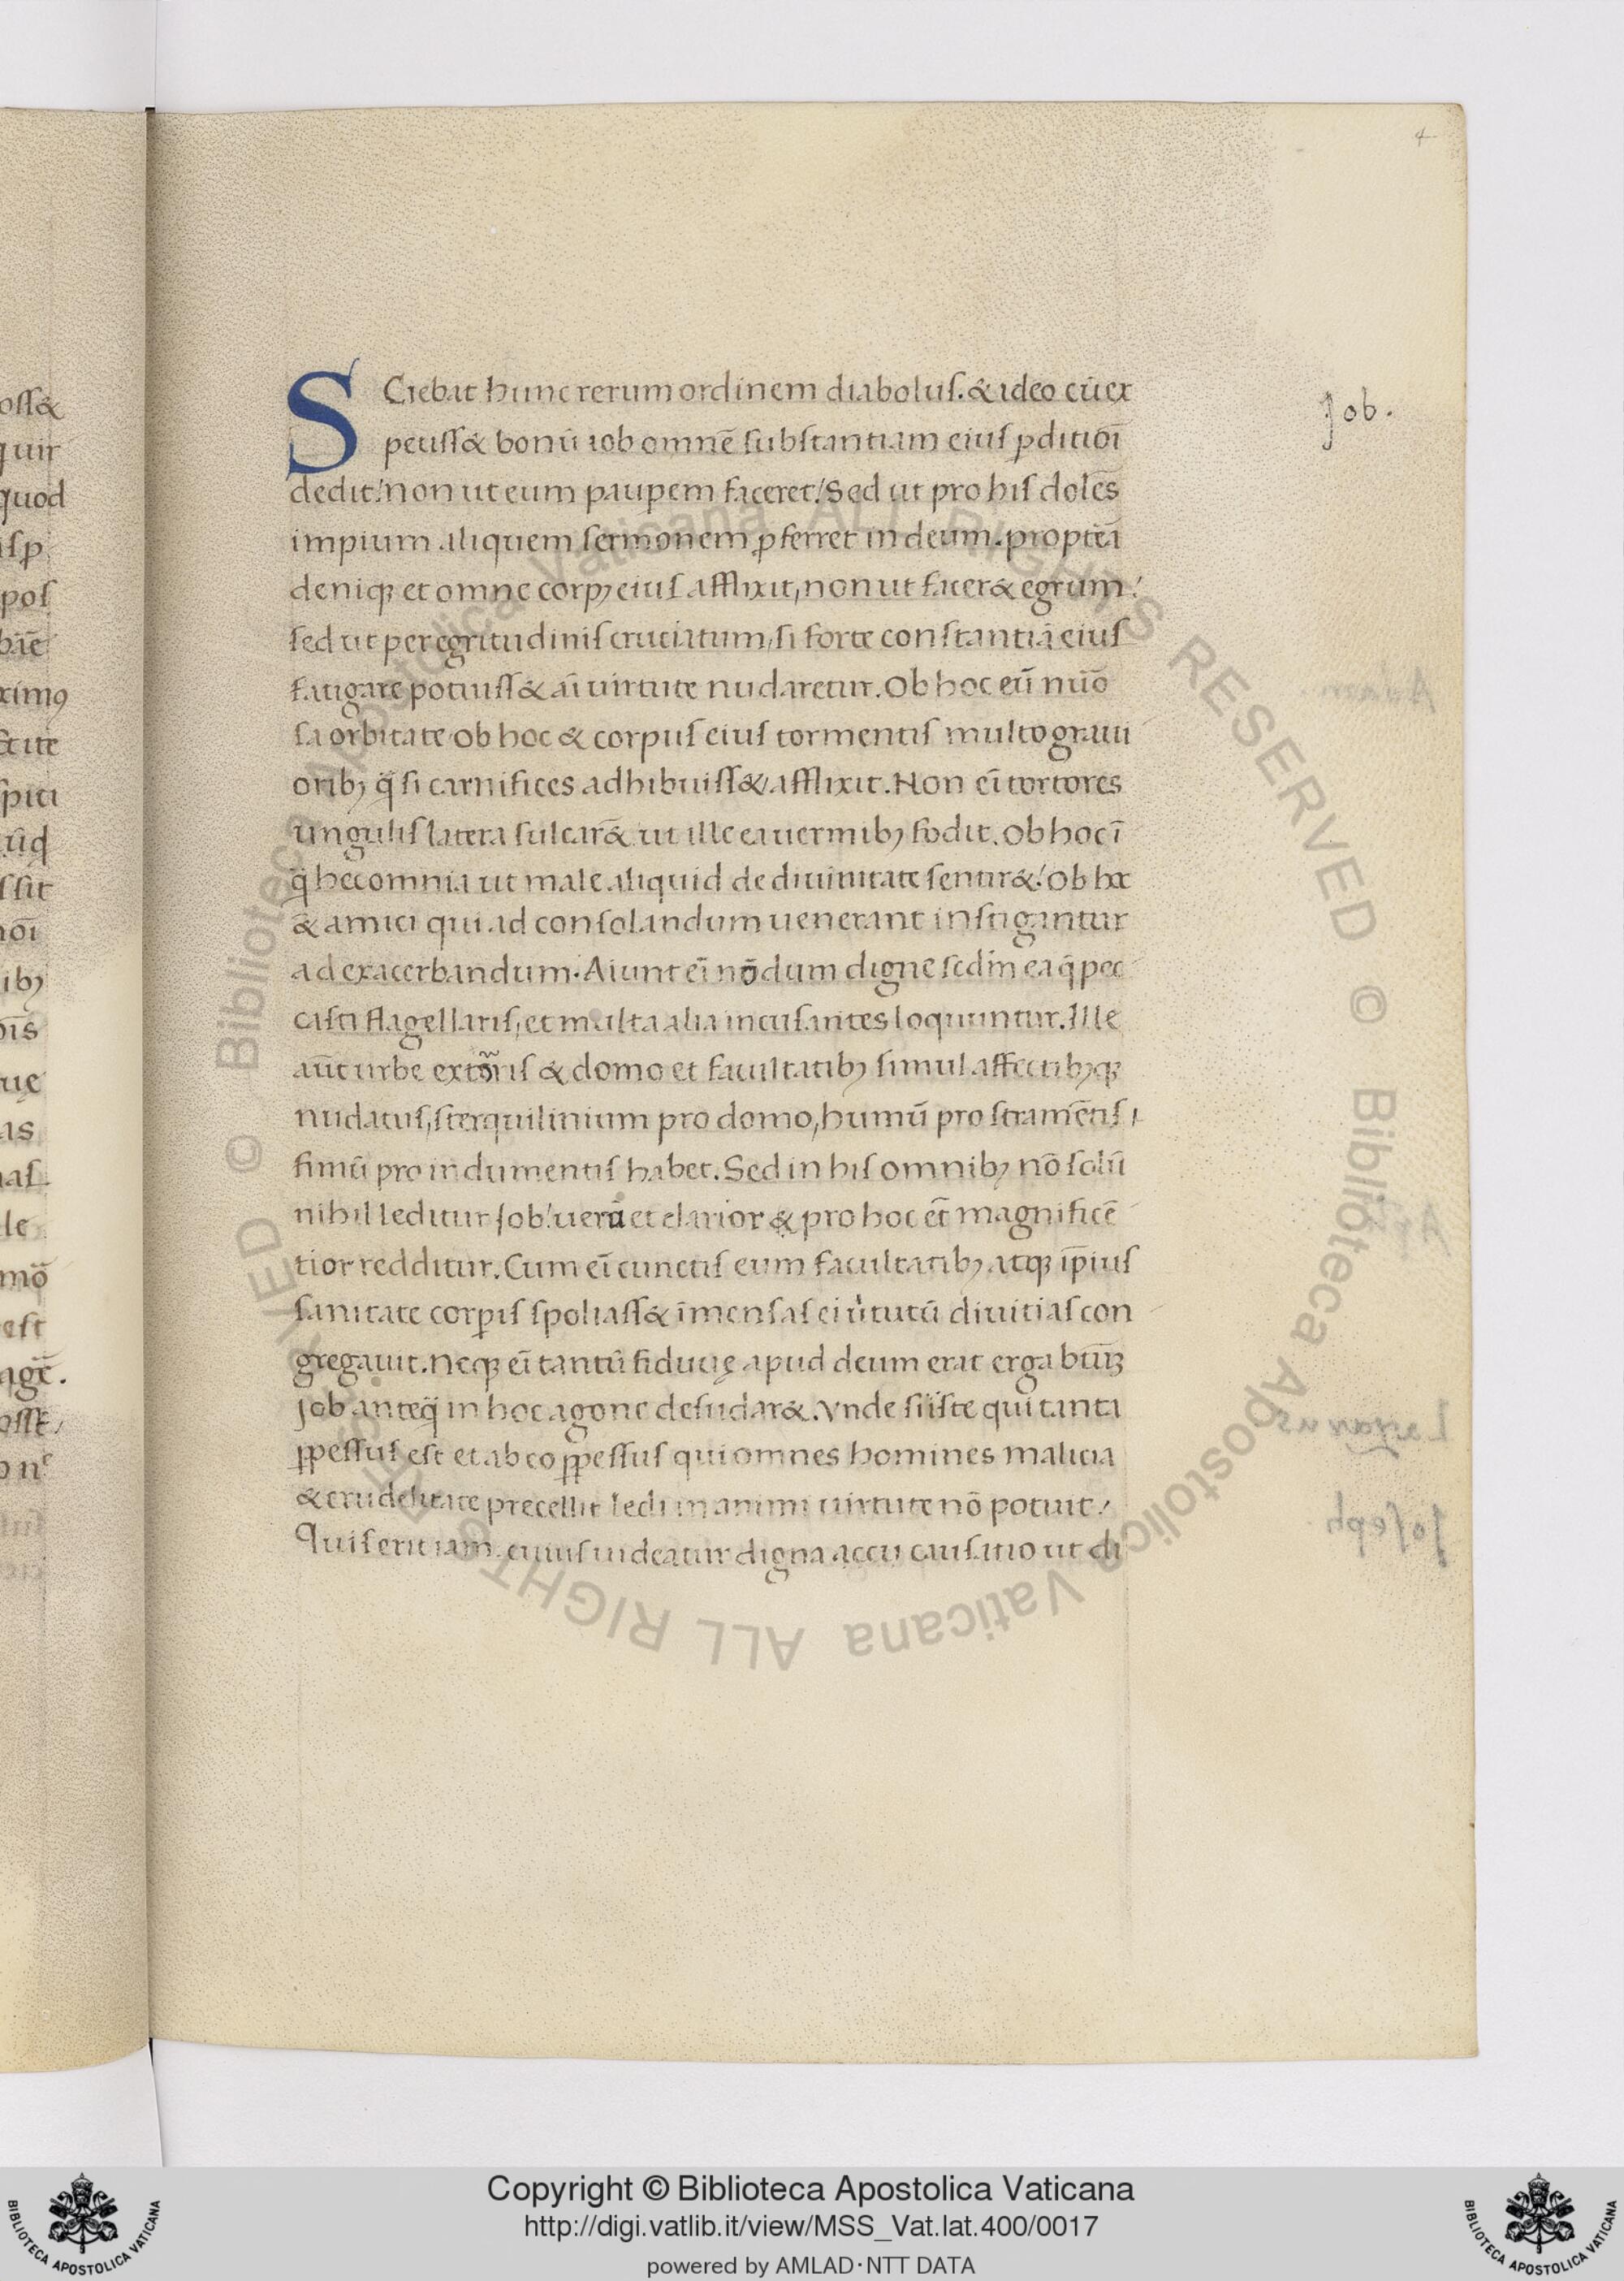 4
Job.
SCiebat hunc rerum ordinem diabolus. & ideo cū ex
petiss& bonū iob omnē substantiam eius ꝑditiōi
dedit! non ut eum paupem faceret! Sed ut pro his dolēs
impium aliquem sermonem ꝓferret in deum. propteā
deniqꝫ et omne corpꝫ eius afflixit, non ut facer& egrum!
sed ut per egritudinis cruciatum, si forte constantiā eius
fatigare potuiss& aī uirtute nudaretur. Ob hoc eū nūō
sa orbitate ob hoc & corpus eius tormentis multo graui
oribꝫ q̄ si carnifices adhibuiss& afflixit. Non eī tortores
ungulis latera sulcar̄& ut ille ea uermibꝫ fodit. Ob hoc ī
q̄ hec omnia ut male aliquid de diuinitate sentir&! Ob hoc
& amici qui ad consolandum uenerant instigantur
ad exacerbandum. Aiunt eī nōdum digne sedm̄ ea q̄ pec
casti flagellaris, et multa alia incusantes loquuntur. Ille
aūt urbe extōris & domo et facultatibꝫ simul affectibꝫqꝫ
nudatus, sterquilinium pro domo, humū pro stramētis,
fimū pro indumentis habet. Sed in his omnibꝫ nō solū
nihil leditur Job! uerū et clarior & pro hoc et̄ magnificē
tior redditur. Cum eī cunctis eum facultatibꝫ atqꝫ ip̄ius
sanitate corpis spoliass& īmensas ei ūtutū diuitias con
gregauit. Neqꝫ eī tantū fiducię apud deum erat erga btūꝫ
Job anteq̄ in hoc agone desudar&. Vnde si iste qui tanta
ꝑpessus est et ab eo ꝑpessus qui omnes homines malicia
& crudelitate precellit ledi in animi uirtute nō potuit!
Quis erit iam cuius uideatur digna accu causatio ut di
Copyright © Biblioteca Apostolica Vaticana
http://digi.vatlib.it/view/MSS_Vat.lat.400/0017
powered by AMLAD·NTT DATA